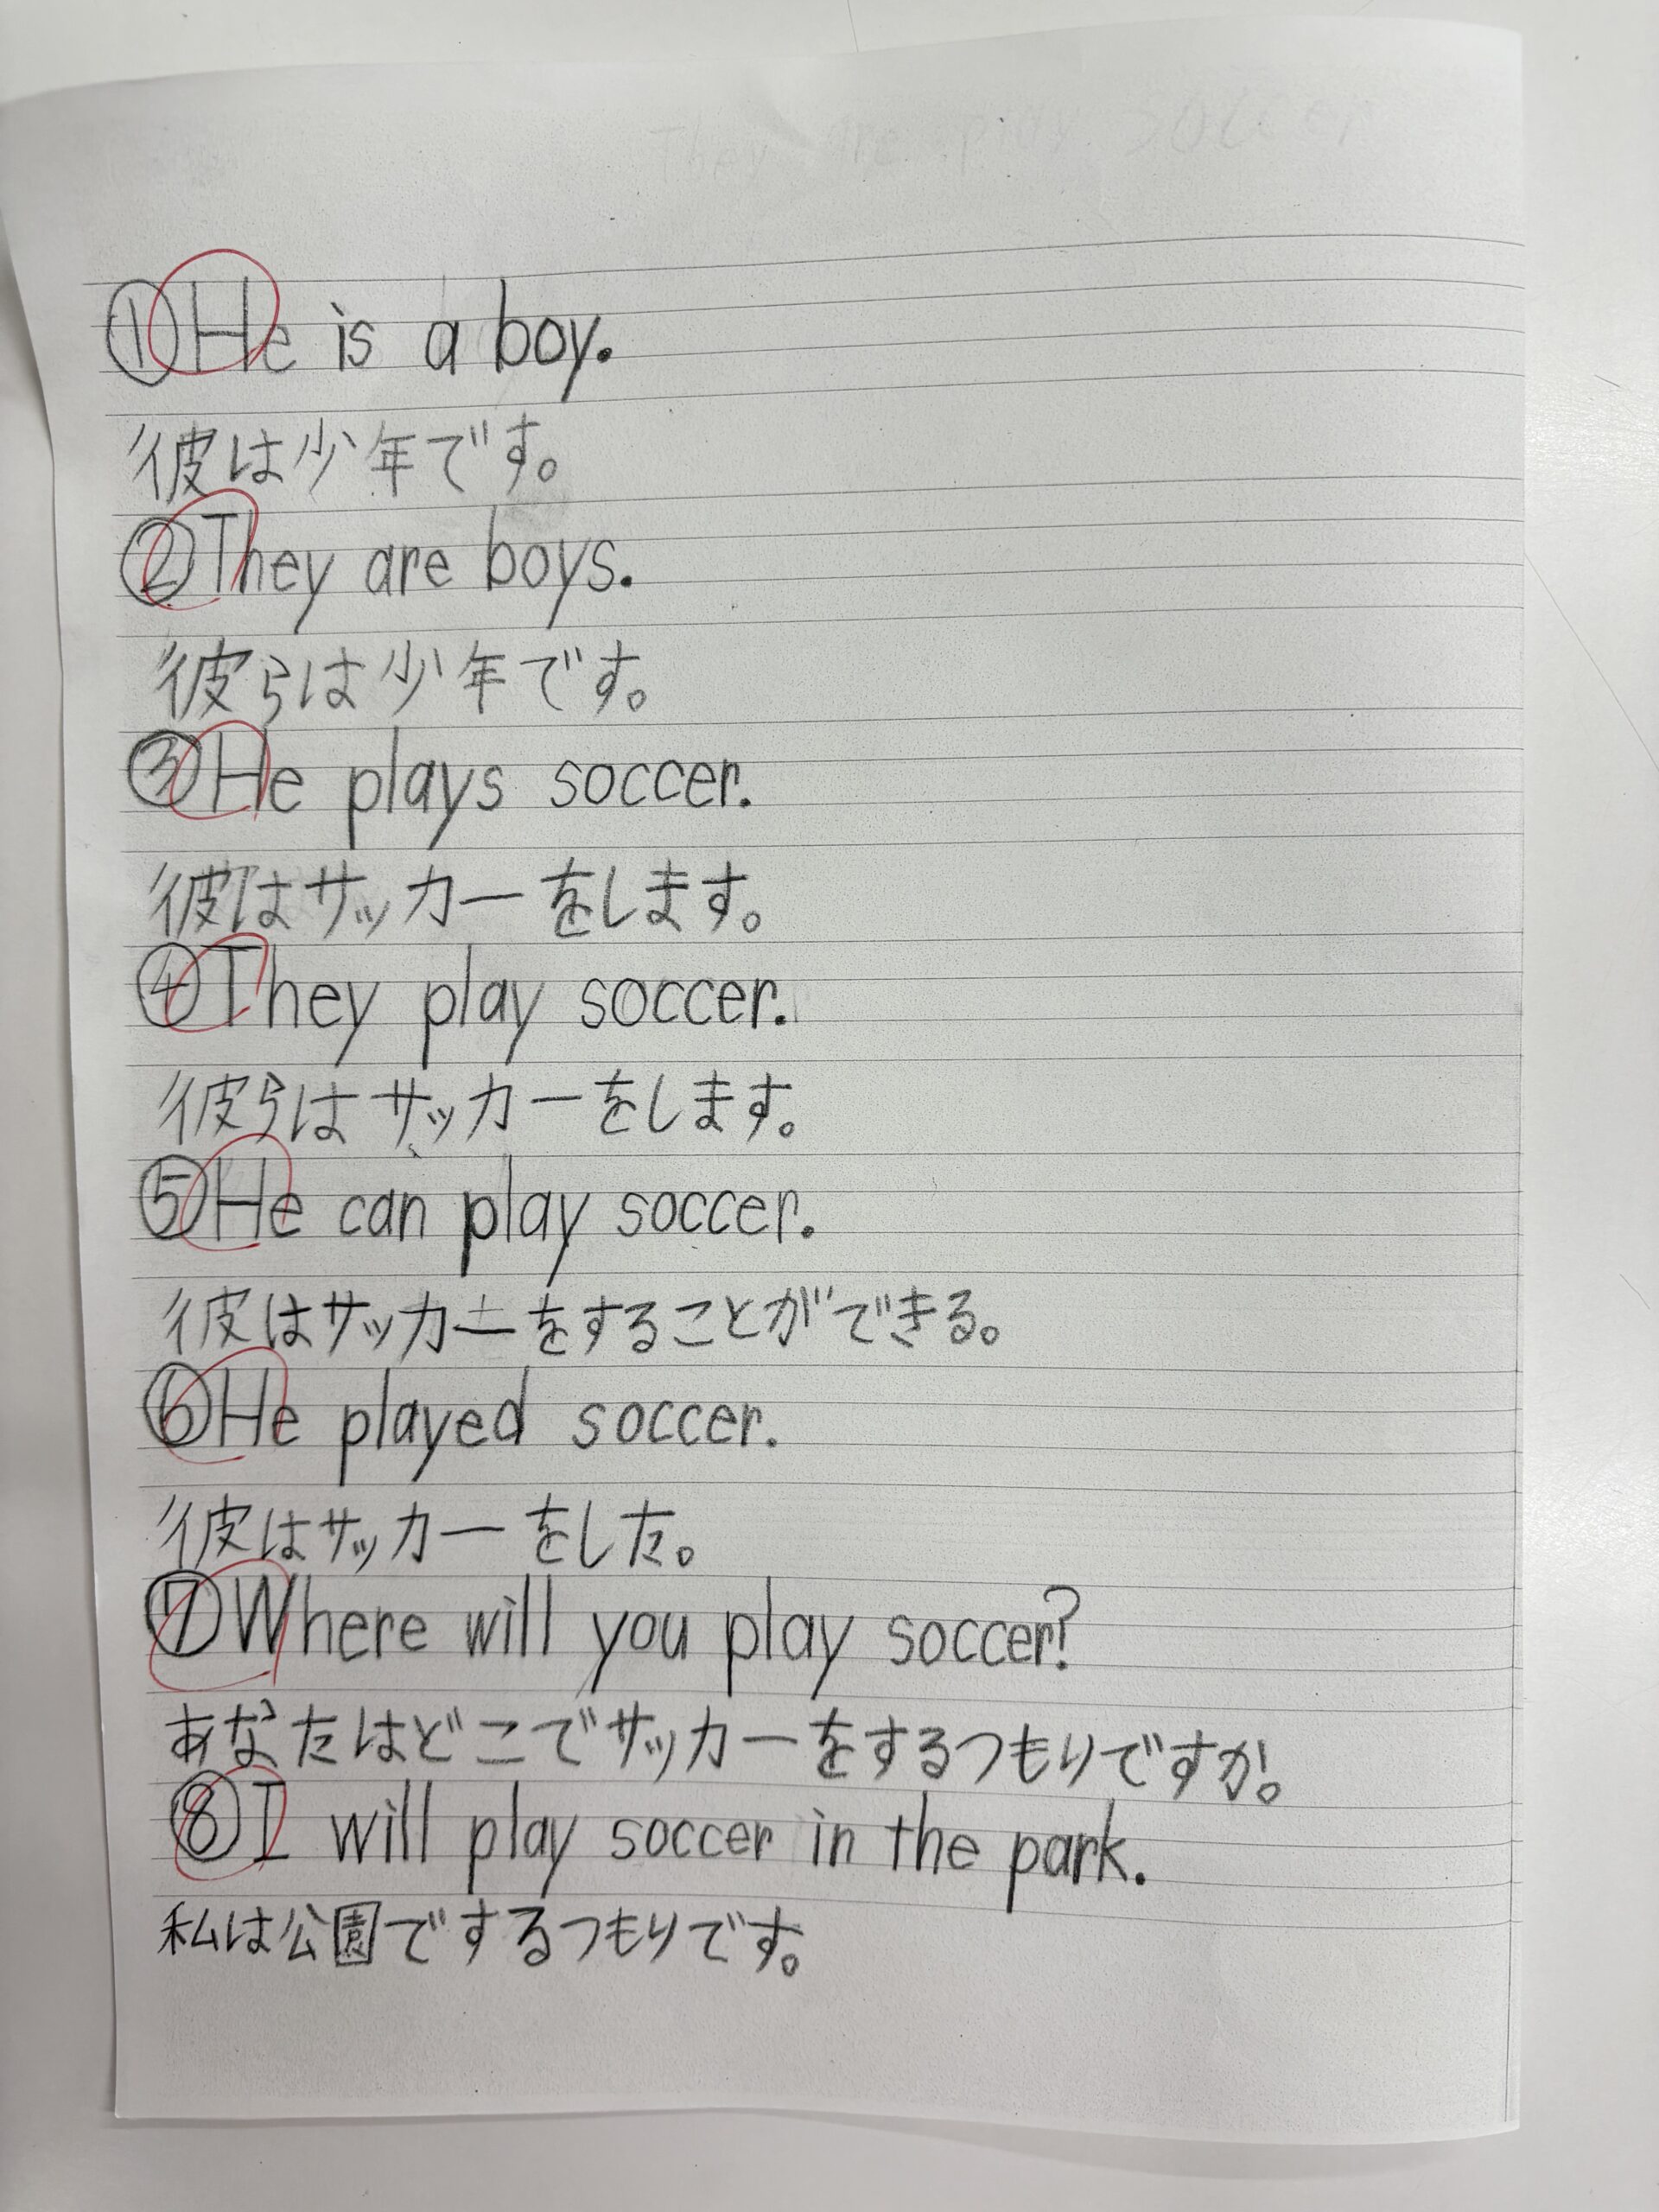 They are play soccer
①He is a boy.
彼は少年です。
②They are boys.
彼らは少年です。
③He plays soccer.
彼はサッカーをします。
④They play soccer.
彼らはサッカーをします。
⑤He can play soccer.
彼はサッカーをすることができる。
⑥He played soccer.
彼はサッカーをした。
⑦Where will you play soccer?
あなたはどこでサッカーをするつもりですか。
⑧I will play soccer in the park.
私は公園でするつもりです。